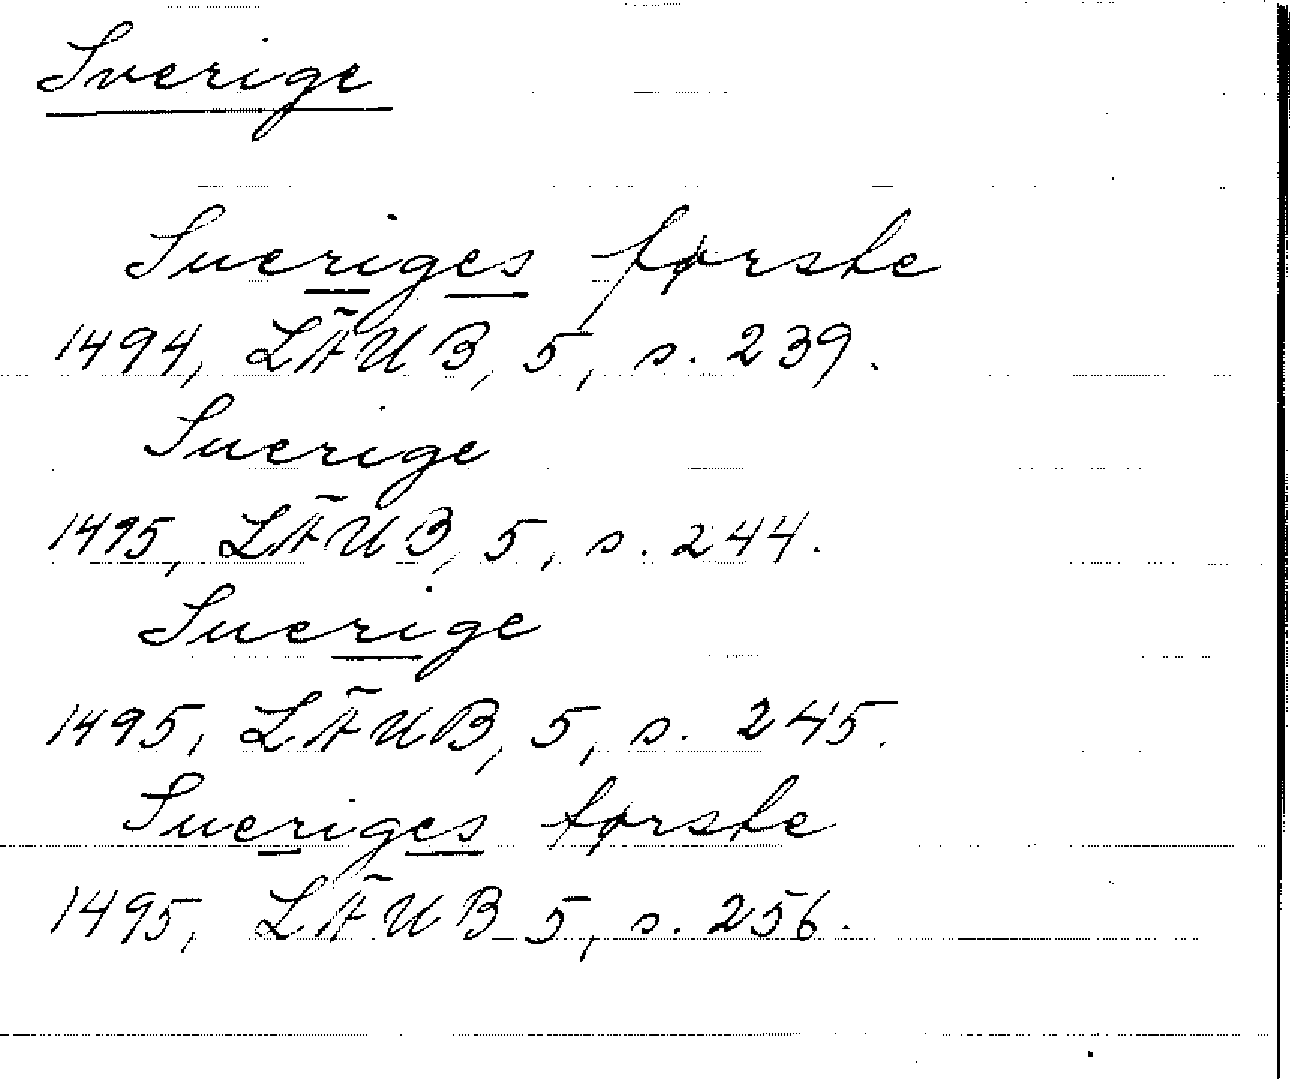 Sverige
Sueriges første
1494, LÄUB, 5, s. 239.
Suerige
1495, LÄUB, 5, s. 244.
Suerige
1495, LÄUB, 5, s. 245.
Sueriges første
1495, LÄUB 5, s. 256.